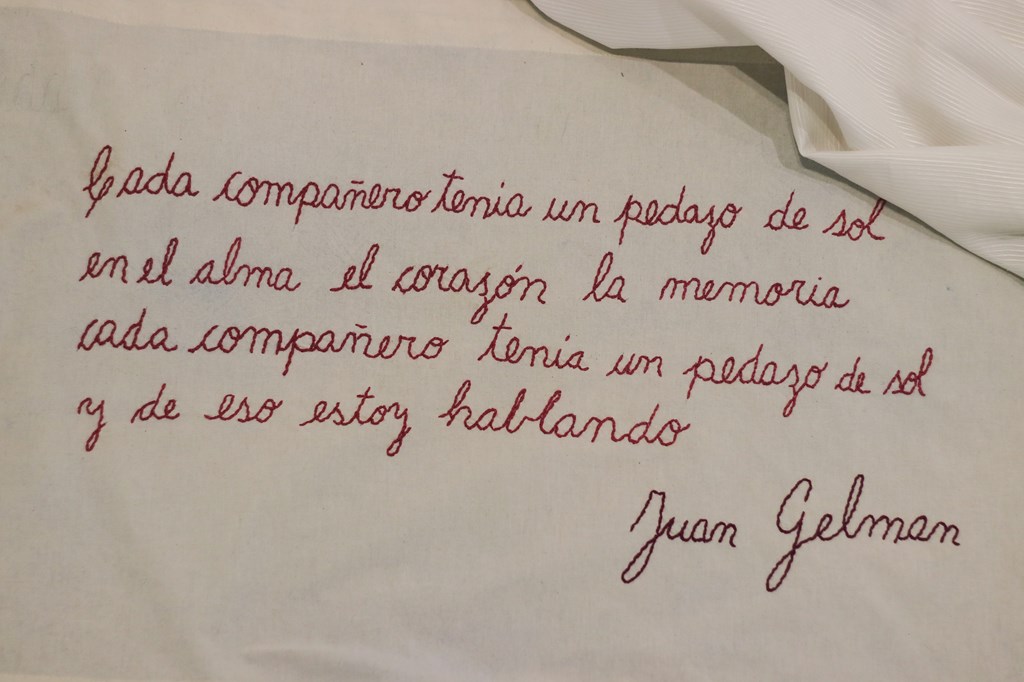 Cada compañero tenia un pedazo de sol
en el alma el corazón la memoria
cada compañero tenia un pedazo de sol
y de eso estoy hablando
Juan Gelman